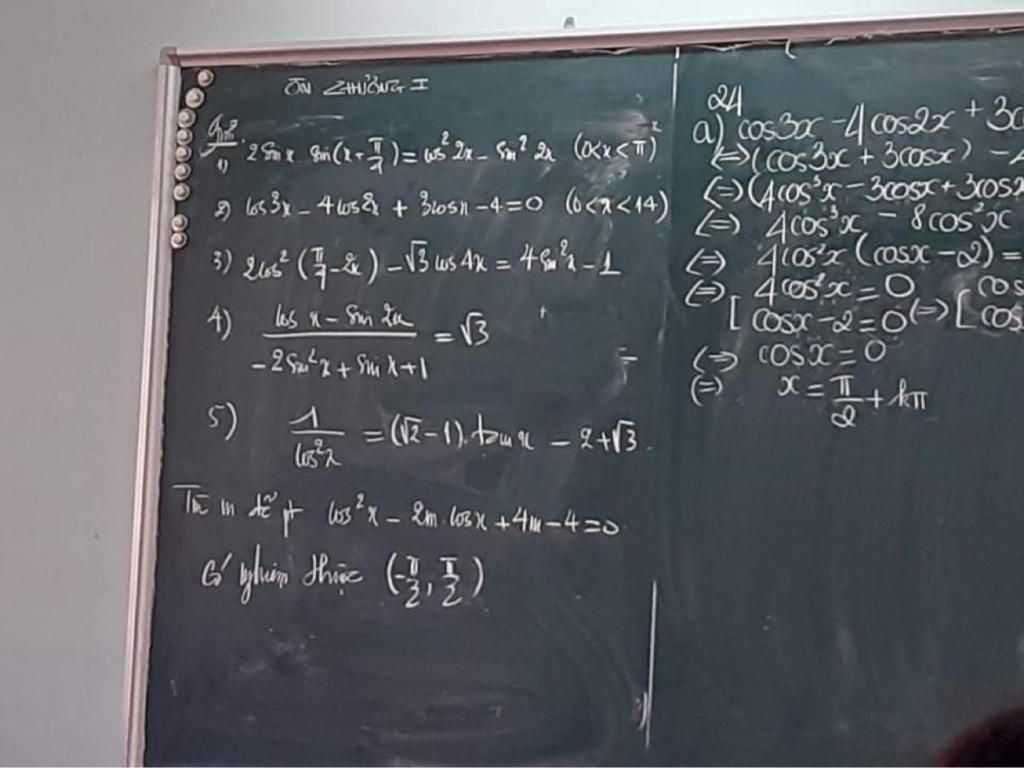 ÔN CHƯƠNG I
1) 2 Sin x . sin(x + π/4) = cos² 2x - Sin² 2x (0<x<π)
2) cos3x - 4cos2x + 3cosx - 4 = 0 (0<x<14)
3) 2cos² (π/4 - 2x) - √3 cos4x = 4 Sin²x - 1
4) (cos x - Sin 2x) / (-2Sin²x + Sin x + 1) = √3
5) 1 / cos²x = (√2 - 1) . tan x - 2 + √3.
m để pt cos²x - 2m . cosx + 4m - 4 = 0
Có nghiệm (-π/2, π/2)
24
a) cos3x - 4cos2x + 3c
<=> (cos3x + 3cosx) -
<=> (4cos³x - 3cosx + 3cosx
<=> 4cos³x - 8cos²x
<=> 4cos²x (cosx - 2) =
<=> [ 4cos²x = 0 cos
cosx - 2 = 0 <=> [ cos
<=> cosx = 0
<=> x = π/2 + kπ